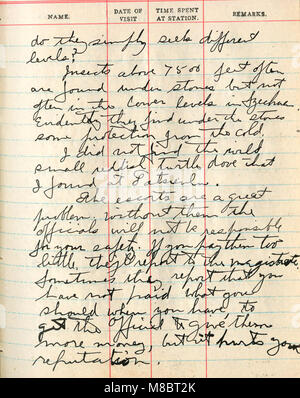 NAME. DATE OF VISIT TIME SPENT AT STATION. REMARKS.
do they simply seek different
levels?
Insects above 7500 feet often
are found under stones but not
often in the lower levels in Szechuan.
Evidently they find under the stones
some protection from the cold.
I did not find the
small turtle dove that
I found at Tatsienlu.
The escorts are a great
problem, without them the
officials will not be responsible
for your safety. If you pay them too
little, they report to the magistrate.
Sometimes they report that you
have not paid what you
should when you have, to
get the official to give them
more money, but it hurts your
reputation.
alamy
Image ID: M8BT2K
www.alamy.com